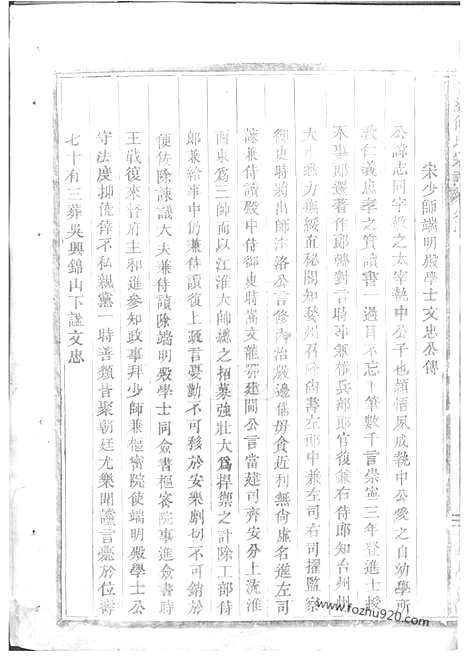 宋少師端明殿學士文忠公傳
公諱志同字 之太宰執中公子也穎悟夙成執中公愛之自幼學所
教仁義忠孝之實讀書一過目不忘下筆數千言崇寧三年登進士授
承事郎遷著作郎轉對言時弊 兵部郎官復兼右侍郎知台州州
大 力撫綏直秘閣知婺州召除尚書左郎中兼左司右司擢監察
御史時將出師沐洛公言修內治嚴邊備毋貪近利無尚虛名遷左司
諫兼侍讀殿中侍御史時萬文龍鄂建閫公言當建司齊安分上流淮
西東為三帥而以江淮大帥總之招募強壯大為捍禦之計除工部侍
郎兼給事中仍兼侍讀復上疏言憂勤不可移於安樂剴切不可銷於
便佞除諫議大夫兼侍讀除端明殿學士同僉書樞密院事進僉書時
王戰復來督府主和進參知政事拜少師兼樞密院使端明殿學士公
守法度抑僥倖不私親黨一時善類皆聚朝廷尤樂聞讜言薨於位壽
七十有三葬吳興錦山下諡文忠
www.fozhu920.com